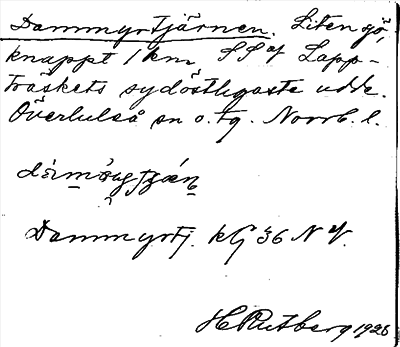 Dammyrtjärnen. Liten sjö,
knappt 1 km SS af Lapp-
träskets sydöstligaste udde.
Överluleå sn o. tg. Norrb. l.
Dammyrtj. kG 36 NV.
H Rutberg 1928